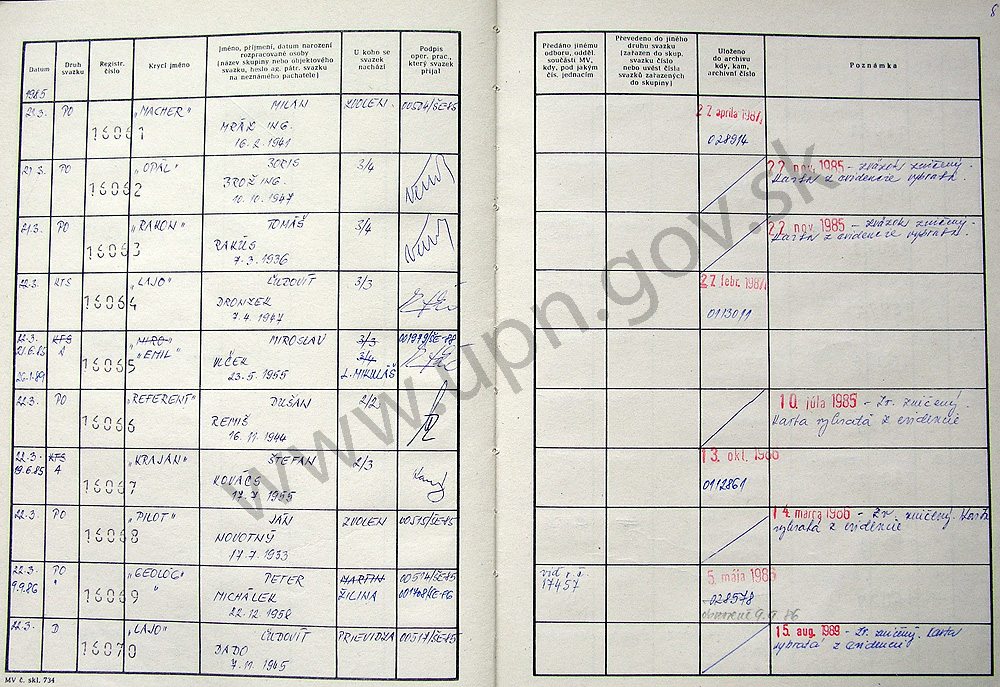 8
Datum
Druh
svazku
Registr.
číslo
Krycí jméno
Jméno, příjmení, datum narození
rozpracované osoby
(název skupiny nebo objektového
svazku, heslo ag. pátr. svazku
na neznámého pachatele)
U koho se
svazek
nachází
Podpis
oper. prac.,
který svazek
přijal
Předáno jinému
odboru, odděl.
součásti MV,
kdy, pod jakým
čís. jednacím
Převedeno do jiného
druhu svazku
(zařazen do skup.
svazku číslo
nebo uvést čísla
svazků zařazených
do skupiny)
Uloženo
do archivu
kdy, kam,
archivní číslo
Poznámka
1985
21.3. PO 16061 "MACHER" MILAN ZVOLEN
MRÁZ ING.
16.2.1941
22 apríla 1987
028914
21.3. PO 16062 "OPÁL" BORIS 3/4
BROŽ ING.
10.10.1947
22 nov. 1985 - zväzok zničený.
Karta z evidencie vybratá
21.3. PO 16063 "RAKON" TOMÁŠ 3/4
RAKÚS
7.3.1936
22 nov. 1985 - zväzok zničený.
Karta z evidencie vybratá.
22.3. KTS 16064 "LAJO" ĽUDOVÍT 3/3
DRONZEK
7.4.1947
27 febr. 1987
0113011
22.3. KTS 16065 "MIRO" MIROSLAV 3/3
21.6.85 A "EMIL" 3/4
VLČEK
26.1.89 23.5.1955 L. MIKULÁŠ
22.3. PO 16066 "REFERENT" DUŠAN 2/2
REMIŠ
16.11.1944
10. júla 1985 - Zv. zničený.
Karta vybratá z evidencie
22.3. KTS 16067 "KRAJAN" ŠTEFAN 2/3
19.6.85 A
KOVÁČS
17.7.1955
13. okt. 1986
0112861
22.3. PO 16068 "PILOT" JÁN ZVOLEN 00515/ŠE-85
NOVOTNÝ
17.7.1933
14. marca 1986 - Zv. zničený. Karta
vybratá z evidencie
22.3. PO 16069 "GEOLÓG" PETER MARTIN 00514/ŠE-85
9.9.86 " " MICHÁLEK ŽILINA
22.12.1958
viď r. č.
17457
5. mája 1986
028578
9.9.86
22.3. D 16070 "LAJO" ĽUDOVÍT PRIEVIDZA 00517/ŠE-85
DADO
7.11.1945
15. aug. 1989 - Zv. zničený. Karta
vybratá z evidencie
MV č. skl. 734
www.upn.gov.sk